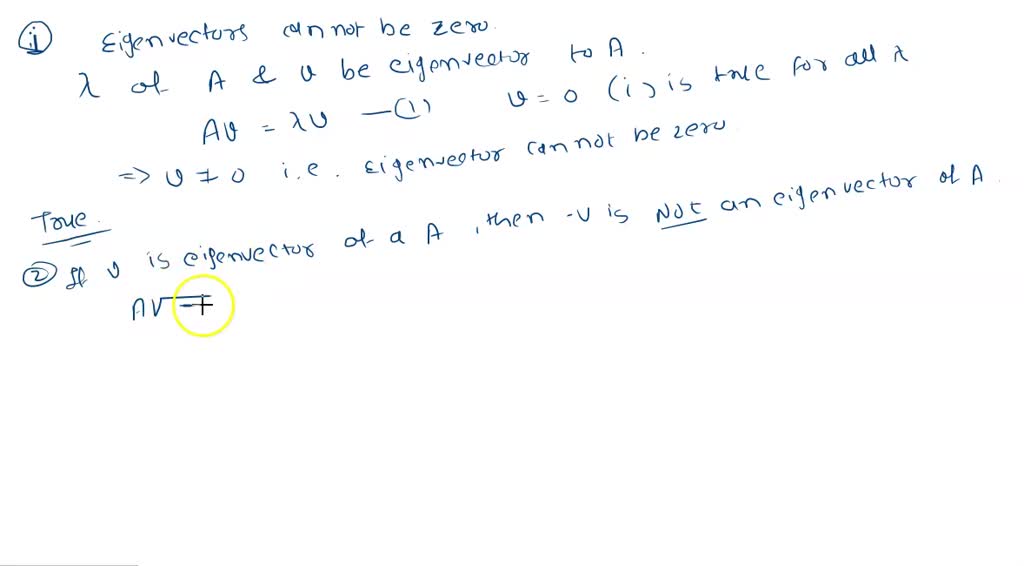 ① Eigenvectors cannot be zero.
λ of A & v be eigenvector to A.
Av = λv —(1) v = 0 (i) is true for all λ
=> v ≠ 0 i.e. Eigenvector cannot be zero
True.
② If v is eigenvector of a A, then -v is NOT an eigenvector of A.
AV =